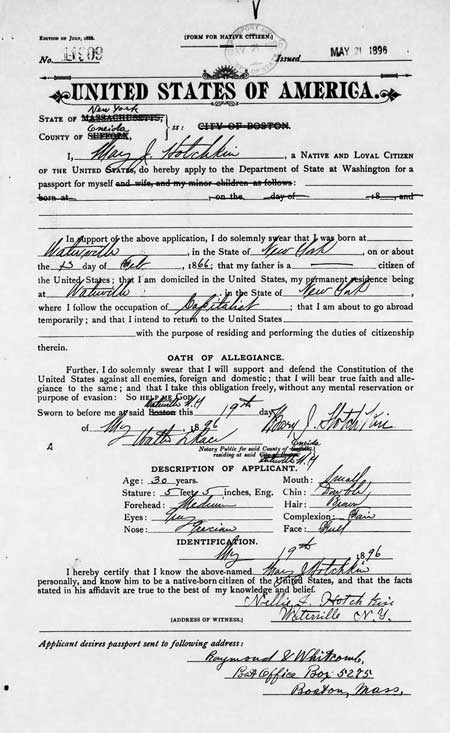 EDITION OF JULY, 1888.
[FORM FOR NATIVE CITIZEN.]
No. Issued MAY 21 1896
UNITED STATES OF AMERICA.
New York
STATE OF MASSACHUSETTS,
Oneida
COUNTY OF SUFFOLK, ss: CITY OF BOSTON.
I, Mary J. Hotchkin, a NATIVE AND LOYAL CITIZEN
OF THE UNITED STATES, do hereby apply to the Department of State at Washington for a
passport for myself and wife, and my minor children as follows:
born at , on the day of , 18 , and
In support of the above application, I do solemnly swear that I was born at
Waterville, in the State of New York, on or about
the day of , 1866; that my father is a citizen of
the United States; that I am domiciled in the United States, my permanent residence being
at Waterville in the State of New York,
where I follow the occupation of Capitalist; that I am about to go abroad
temporarily; and that I intend to return to the United States
with the purpose of residing and performing the duties of citizenship
therein.
OATH OF ALLEGIANCE.
Further, I do solemnly swear that I will support and defend the Constitution of the
United States against all enemies, foreign and domestic; that I will bear true faith and allegiance
to the same; and that I take this obligation freely, without any mental reservation or
purpose of evasion: SO HELP ME GOD.
Waterville N.Y.
Sworn to before me at said Boston this 19th day
of May 1896 Mary J. Hotchkin
Notary Public for said County of Suffolk, Oneida
residing at said City of Boston. Waterville N.Y.
DESCRIPTION OF APPLICANT.
Age: 30 years. Mouth: Small
Stature: 5 feet 5 inches, Eng. Chin: Double
Forehead: Medium Hair: Brown
Eyes: Grey Complexion: Fair
Nose: Grecian Face: Full
IDENTIFICATION.
May 19th 1896
I hereby certify that I know the above-named Mary J Hotchkin
personally, and know him to be a native-born citizen of the United States, and that the facts
stated in his affidavit are true to the best of my knowledge and belief.
Nellie L. Hotchkin
[ADDRESS OF WITNESS.] Waterville N.Y.
Applicant desires passport sent to following address:
Raymond & Whitcomb,
Post Office Box 5275
Boston, Mass.